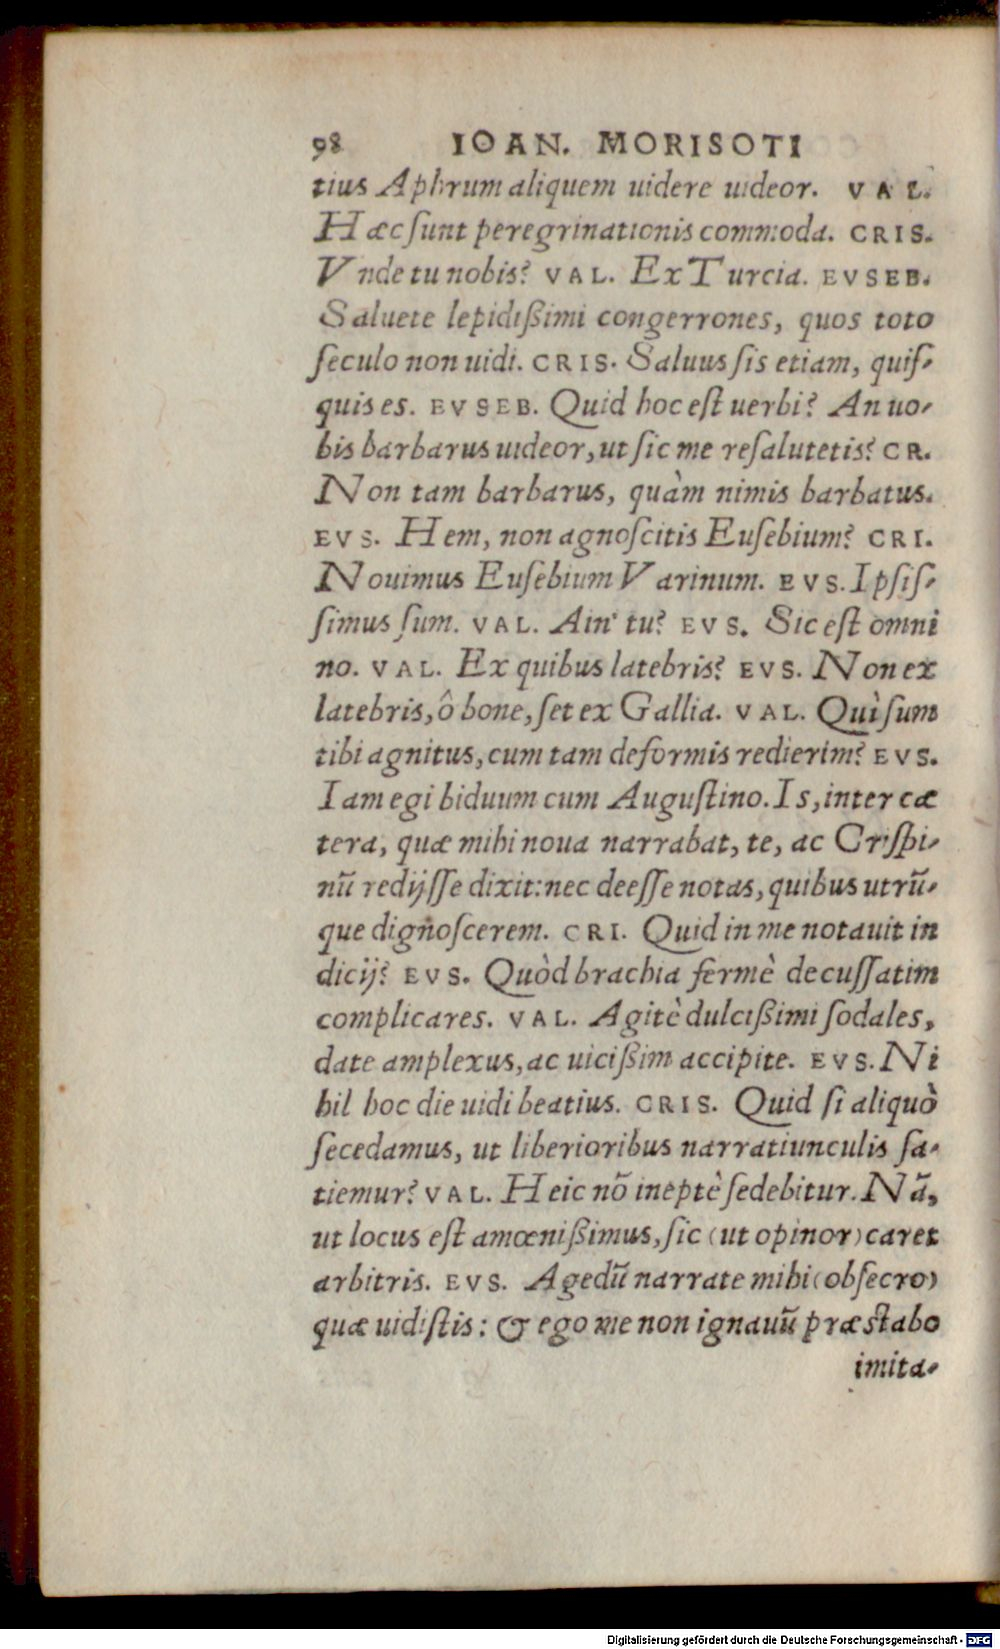 98 IOAN. MORISOTI
tius Aphrum aliquem uidere uideor. VAL.
Hæc ſunt peregrinationis commoda. CRIS.
Vnde tu nobis? VAL. Ex Turcia. EVSEB.
Saluete lepidißimi congerrones, quos toto
ſeculo non uidi. CRIS. Saluus ſis etiam, quiſ-
quis es. EVSEB. Quid hoc eſt uerbi? An uo-
bis barbarus uideor, ut ſic me reſalutetis? CR.
Non tam barbarus, quàm nimis barbatus.
EVS. Hem, non agnoſcitis Euſebium? CRI.
Nouimus Euſebium Varinum. EVS. Ipſiſ-
ſimus ſum. VAL. Ain' tu? EVS. Sic eſt omni
no. VAL. Ex quibus latebris? EVS. Non ex
latebris, ô bone, ſet ex Gallia. VAL. Quì ſum
tibi agnitus, cum tam deformis redierim? EVS.
Iam egi biduum cum Auguſtino. Is, inter cæ
tera, quæ mihi noua narrabat, te, ac Criſpi-
nũ redijſſe dixit: nec deeſſe notas, quibus utrũ-
que dignoſcerem. CRI. Quid in me notauit in
dicij? EVS. Quòd brachia fermè decuſſatim
complicares. VAL. Agitè dulcißimi ſodales,
date amplexus, ac uicißim accipite. EVS. Ni
hil hoc die uidi beatius. CRIS. Quid ſi aliquò
ſecedamus, ut liberioribus narratiunculis ſa-
tiemur? VAL. Heic nõ ineptè ſedebitur. Nã,
ut locus eſt amœnißimus, ſic (ut opinor) caret
arbitris. EVS. Agedũ narrate mihi (obſecro)
quæ uidiſtis: & ego me non ignauũ præſtabo
imita-
Digitalisierung gefördert durch die Deutsche Forschungsgemeinschaft - DFG